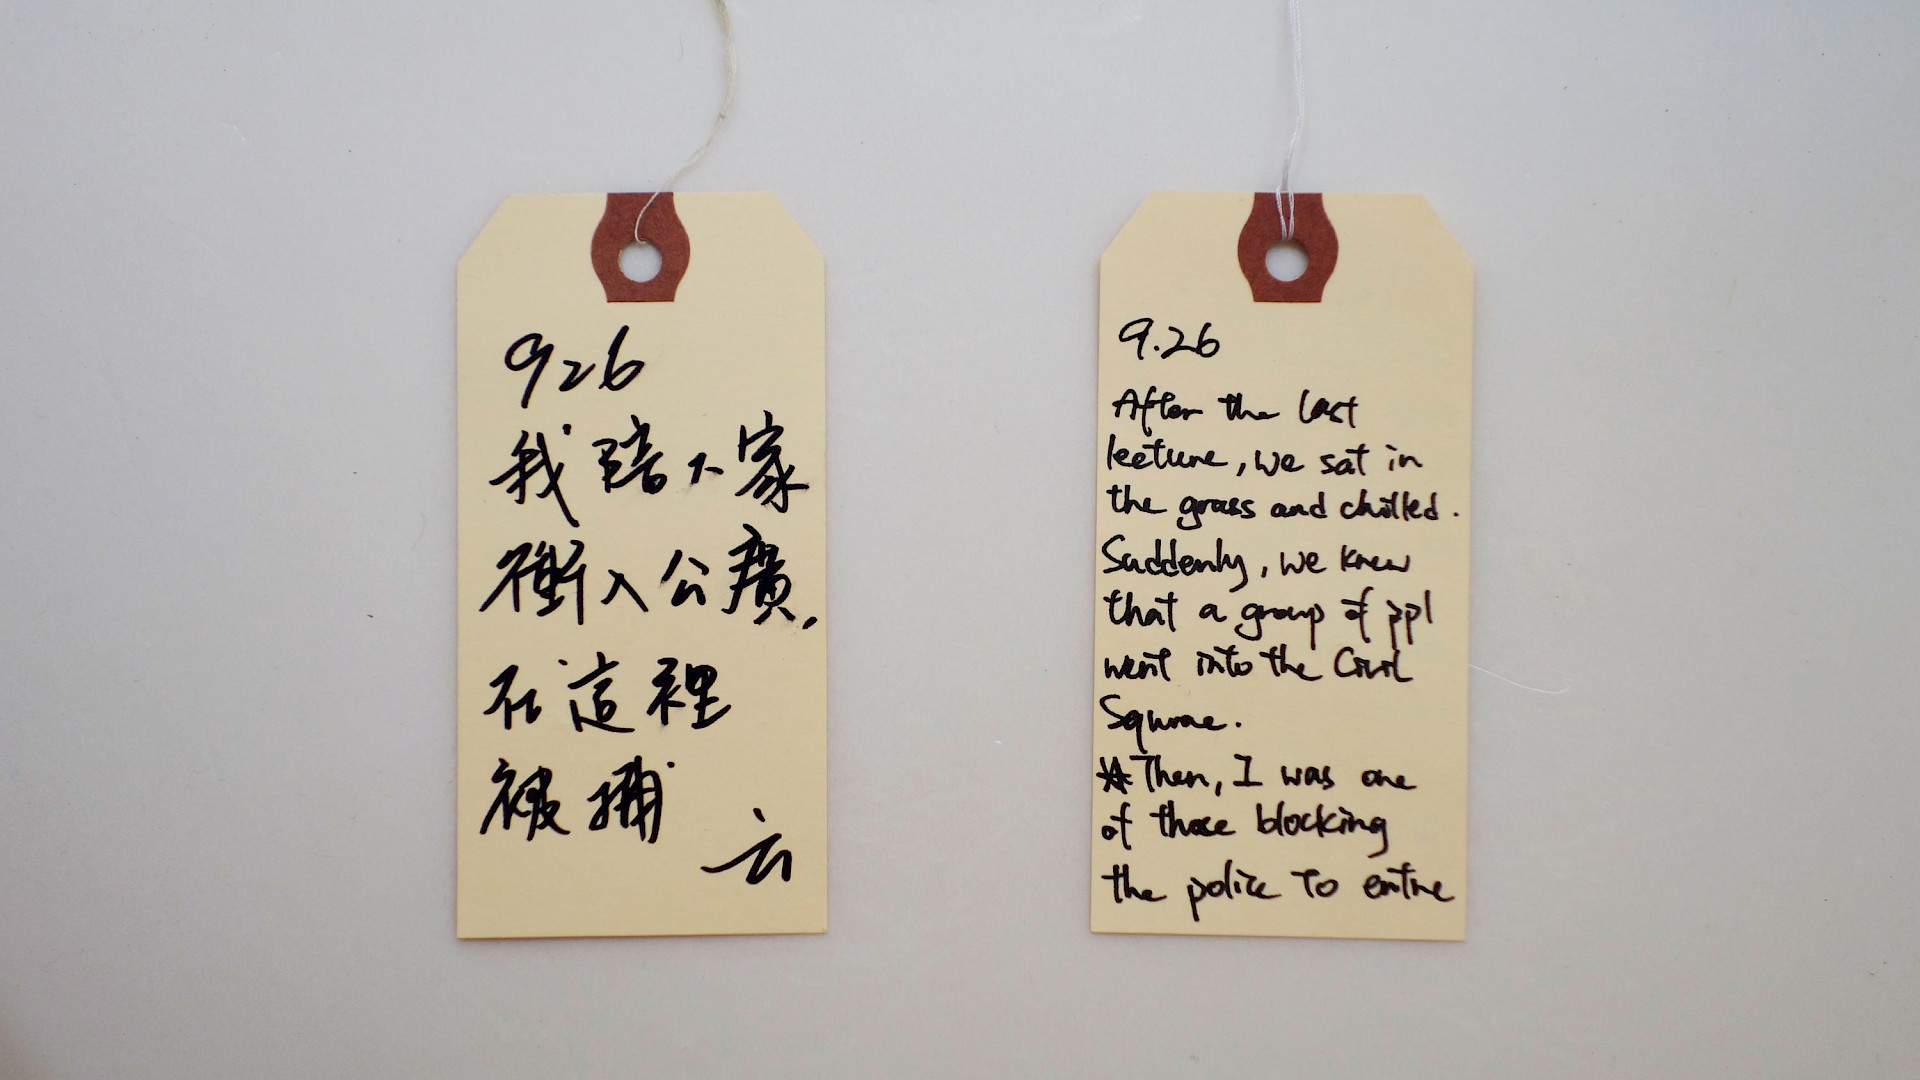 926
我陪大家
衝入公廣,
在這裡
被捕
云
9.26
After the last
lecture, we sat in
the grass and chilled.
Suddenly, we knew
that a group of ppl
went into the Civil
Squrae.
Then, I was one
of those blocking
the police to entre